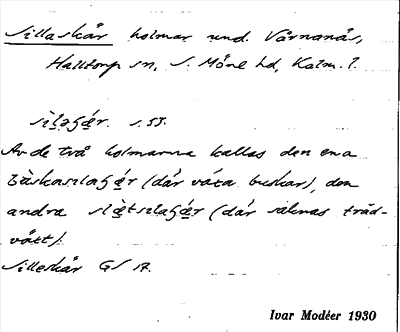 Sillaskär holmar und. Värnanäs,
Halltorp sn, S. Möre hd, Kalm. l.
s. 53.
Av de två holmarna kallas den ena
(där växa buskar), den
andra (där saknas träd-
växt).
Silleskär GS 17.
Ivar Modéer 1930